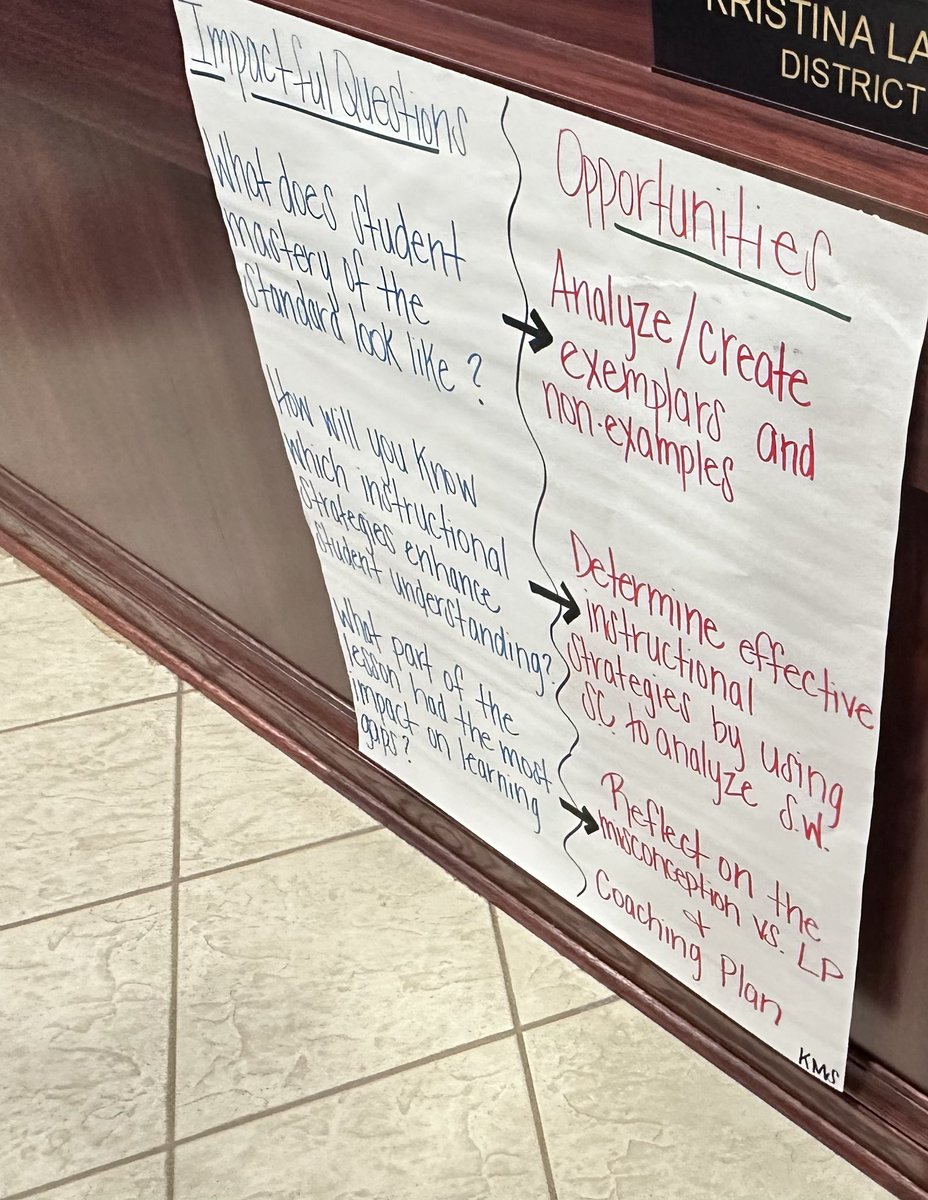 KRISTINA LA
DISTRICT
Impactful Questions
What does student
mastery of the
standard look like?
How will you know
which instructional
strategies enhance
student understanding?
What part of the
lesson had the most
impact on learning
gaps?
Opportunities
Analyze/create
exemplars and
non-examples
Determine effective
instructional
strategies by using
SC to analyze S.W.
Reflect on the
misconception vs. LP
&
Coaching Plan
KMS